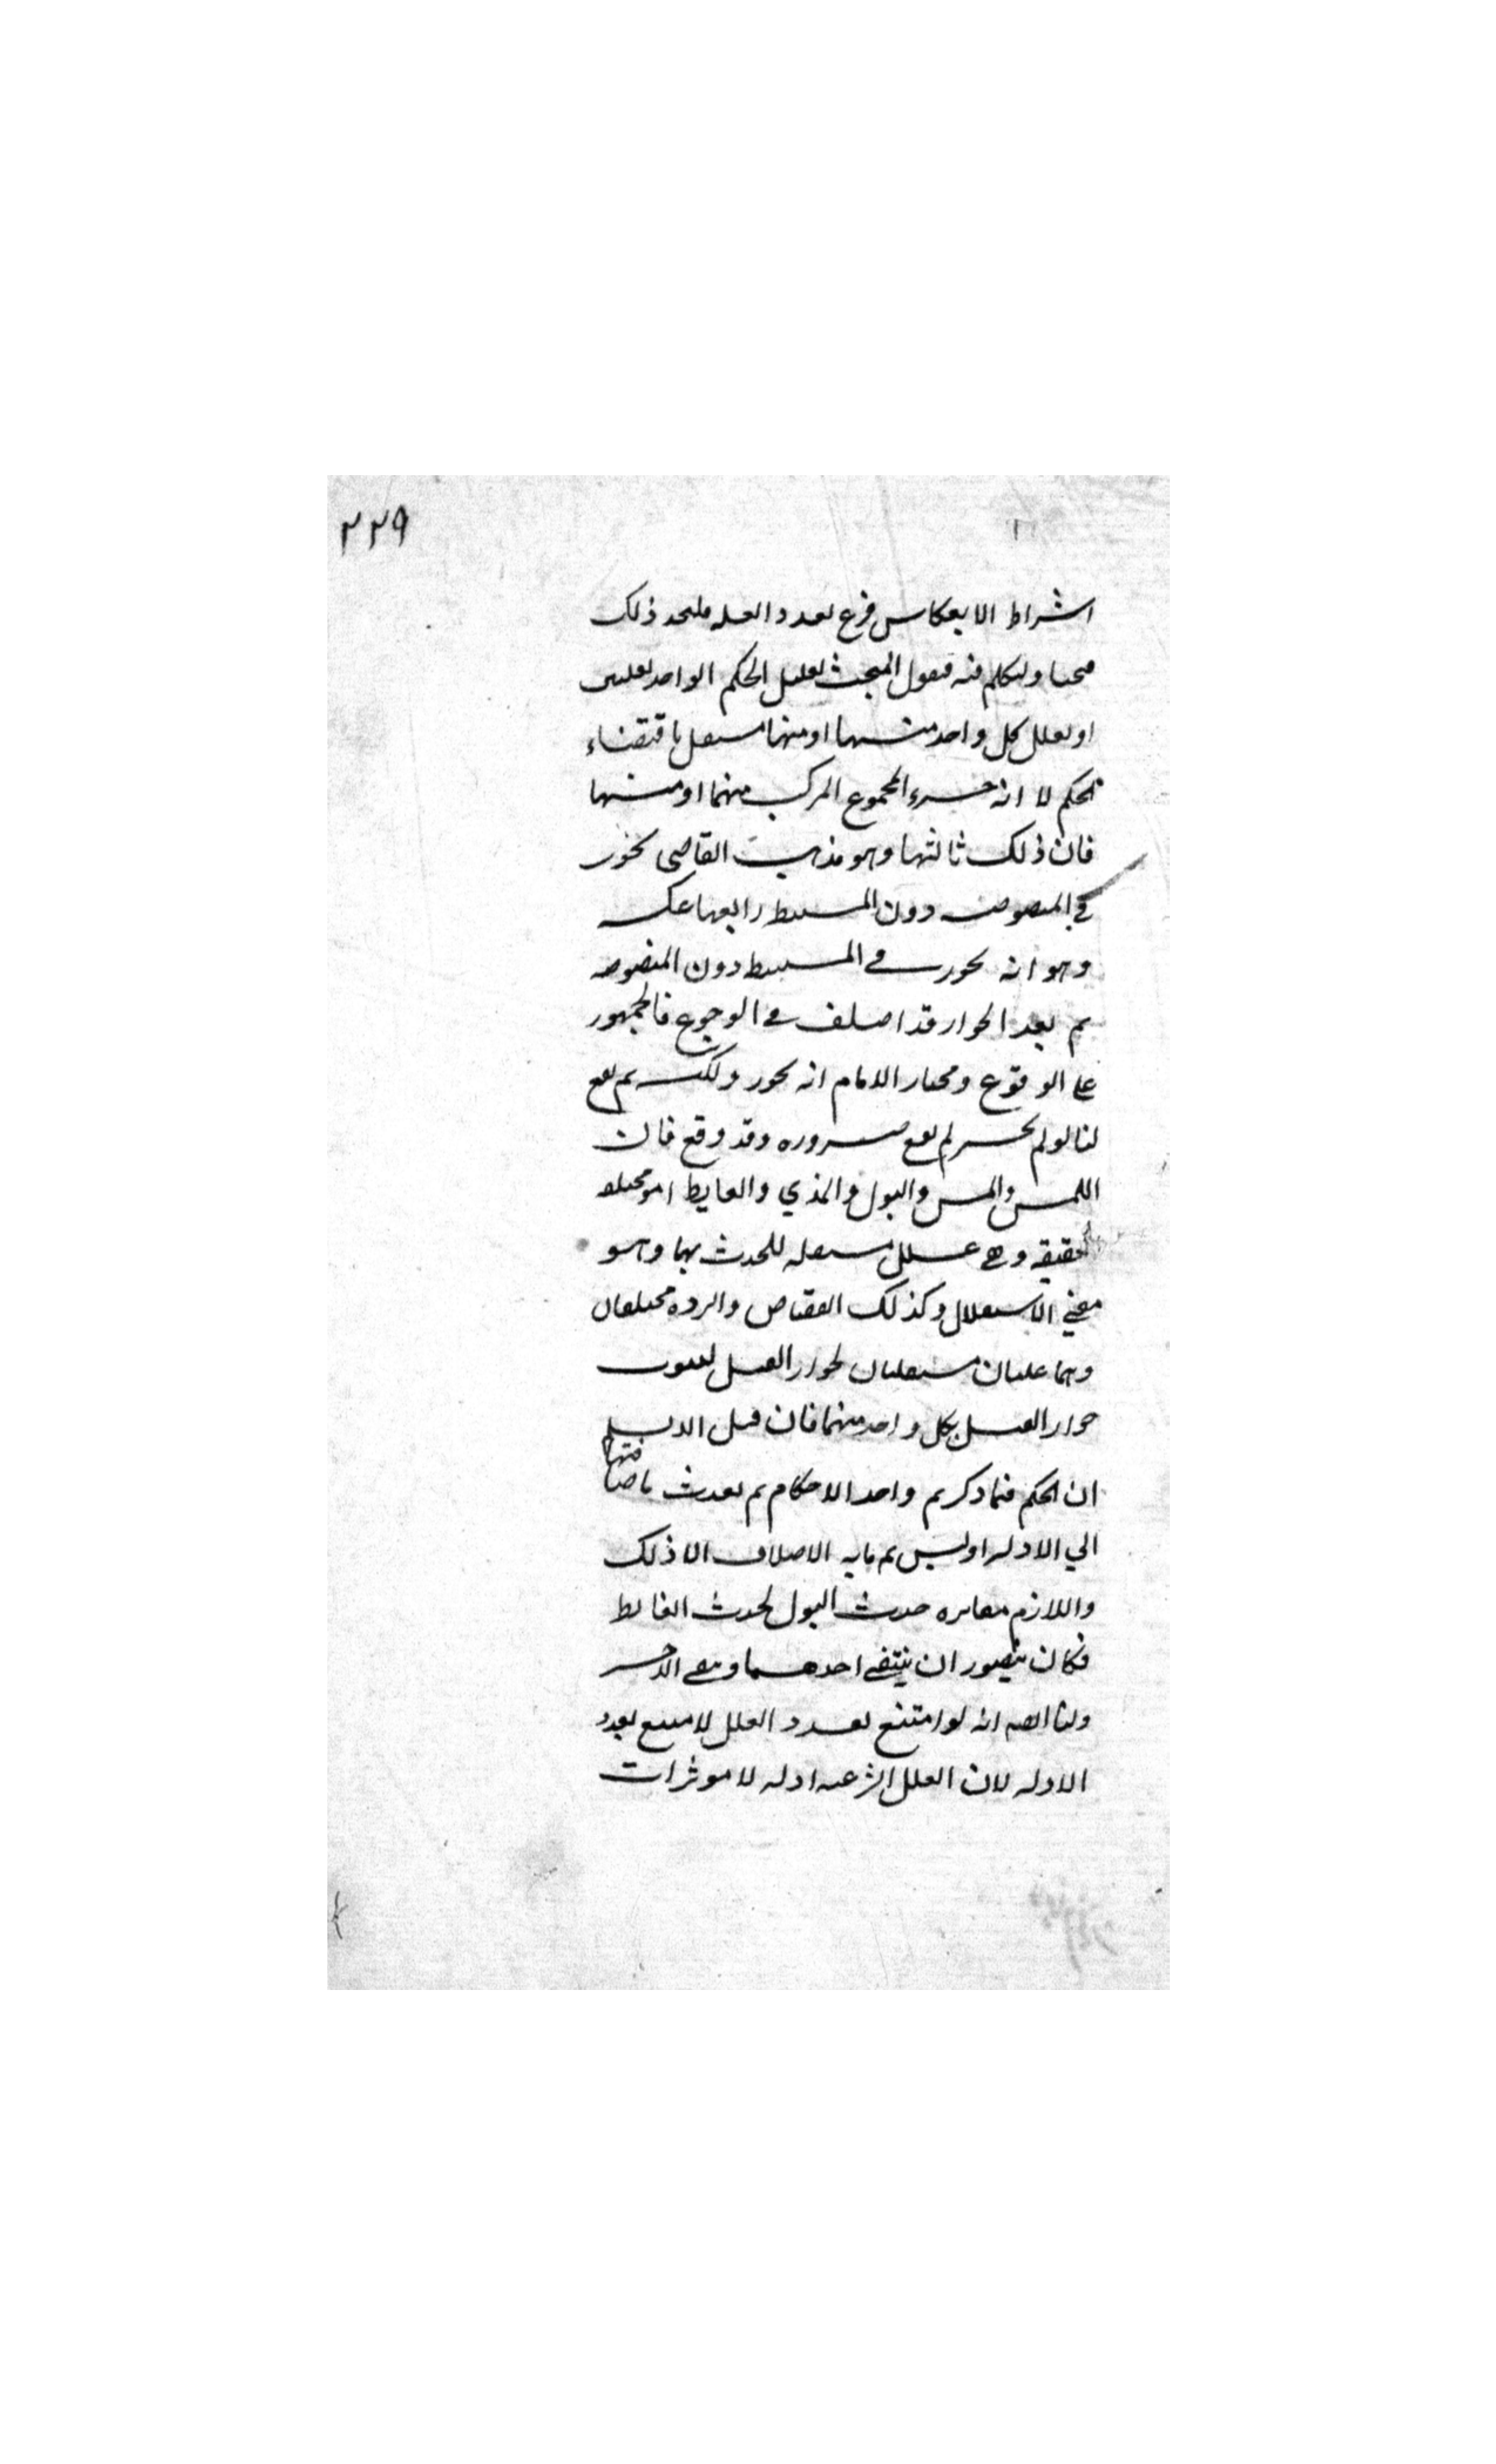 ٢٢٩
اشراط الانعكاس فرع تعدد العله فليجد ذلك
مبحثا ولنتكلم فيه فنقول المبحث تعليل الحكم الواحد بعلتين
او بعلل كل واحد منهما او منها مستقل باقتضاء
الحكم لا انه جزء المجموع المركب منهما او منها
فان ذلك ثالثها وهو مذهب القاضي يجوز
في المنصوصه دون المستنبطه رابعها عكسه
وهو انه يجوز في المستنبطه دون المنصوصه
ثم بعد الجواز قد اختلف في الوقوع فالجمهور
على الوقوع ومختار الامام انه يجوز ولكن لم يقع
لنا لو لم يجز لم يقع ضروره وقد وقع فان
اللمس والمس والبول والمذي والغايط امور مختلفه
الحقيقه وهي علل مستقله للحدث بها وهو
معنى الاستقلال وكذلك القصاص والرده مختلفان
وهما علتان مستقلتان لجواز القتل لثبوت
جواز القتل بكل واحد منهما فان قيل الدليل
ان الحكم فيما ذكرتم واحد الاحكام ثم تعددت باضافتها
الي الادله او ليس ثم ما به الاختلاف الا ذلك
واللازم مغايره حدث البول لحدث الغائط
فكان يتصور ان ينتفي احدهما ويبقى الاخر
ولنا ايضا انه لو امتنع تعدد العلل لامتنع تعدد
الادله لان العلل الشرعيه ادله لا موثرات